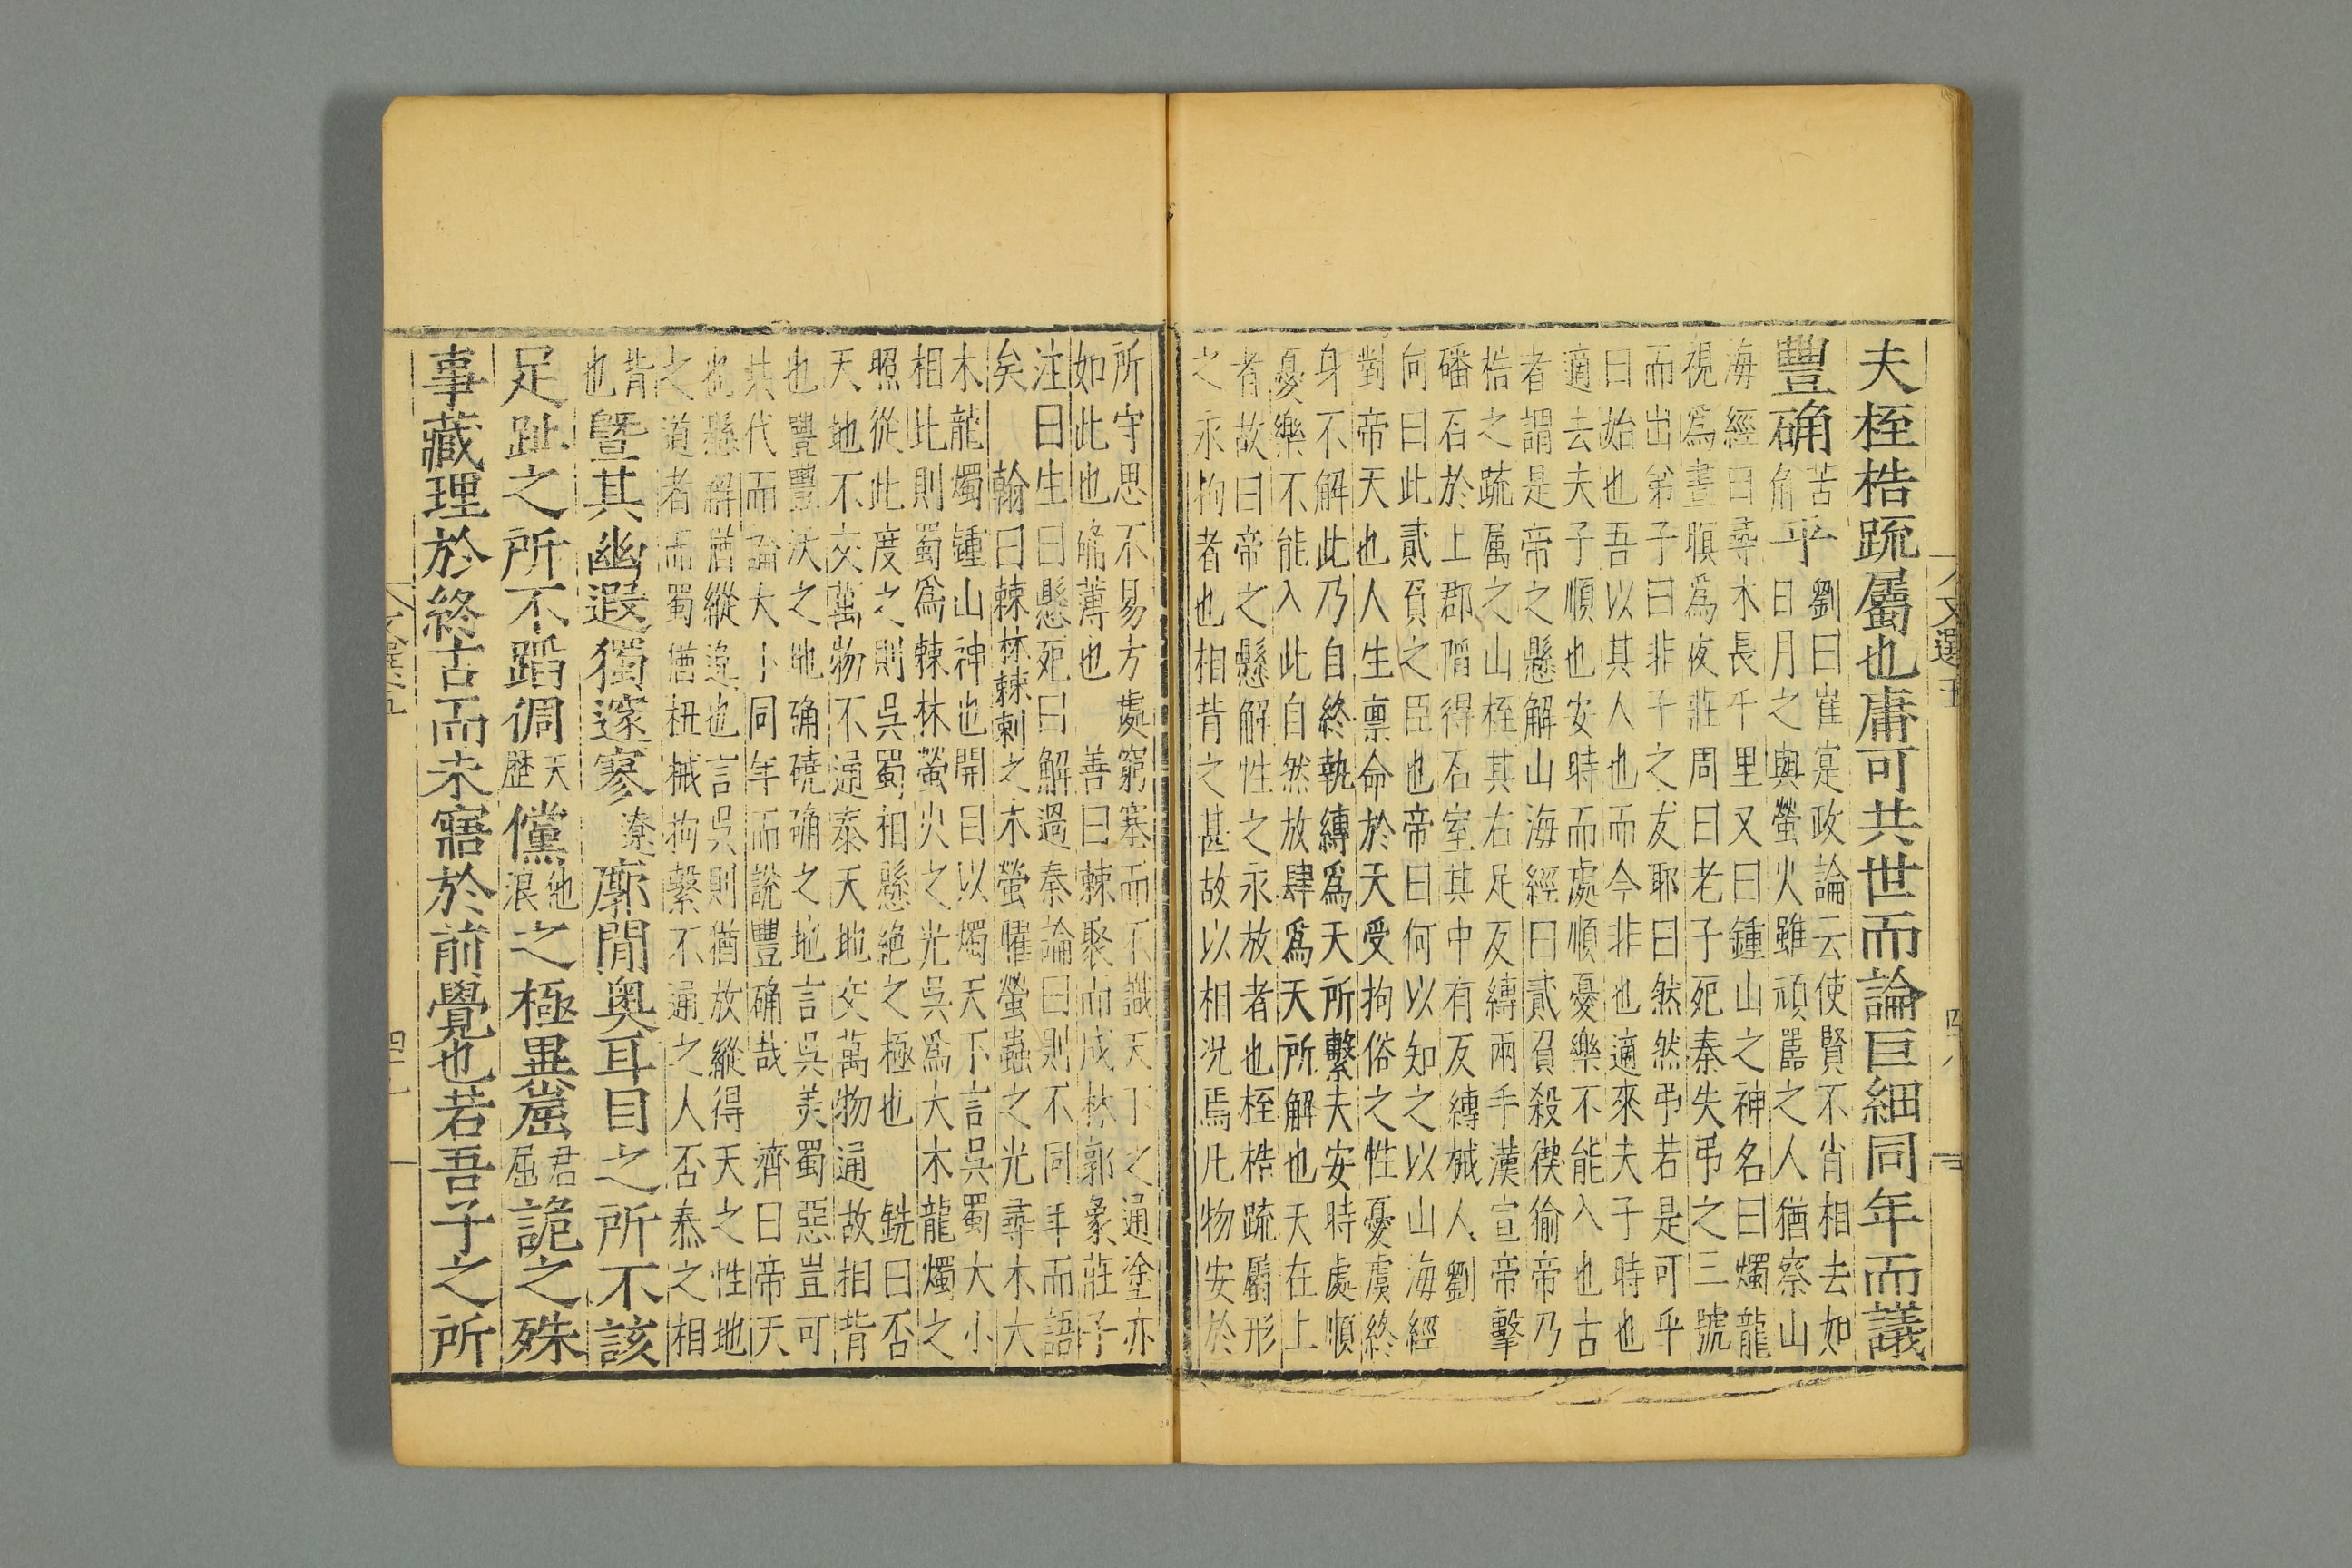 夫桎梏疏屬也庸可共世而論巨細同年而議
豐确
苦
角
乎
劉曰崔寔政論云使賢不肖相去如
日月之與螢火雖頑嚚之人猶察山
海經曰尋木長千里又曰鍾山之神名曰燭龍
視爲晝瞑爲夜莊周曰老子死秦失弔之三號
而出弟子曰非子之友耶曰然然弔若是可乎
曰始也吾以其人也而今非也適來夫子時也
適去夫子順也安時而處順憂樂不能入也古
者謂是帝之懸解山海經曰貳負殺㺉㺄帝乃
梏之疏屬之山桎其右足反縛兩手漢宣帝擊
磻石於上郡陷得石室其中有反縛械人劉
向曰此貳負之臣也帝曰何以知之以山海經
對帝天也人生禀命於天受拘俗之性憂虞終
身不解此乃自終執縛爲天所繫夫安時處順
憂樂不能入此自然放肆爲天所解也天在上
者故曰帝之懸解性之永放者也桎梏疏屬形
之永拘者也相背之甚故以相況焉凡物安於
所守思不易方處窮塞而不識天下之通塗亦
如此也确薄也 善曰棘聚而成林郭象莊子
注曰生曰懸死曰解過秦論曰則不同年而語
矣 翰曰棘林棘刺之木螢㷸螢蟲之光尋木大
木龍燭鍾山神也開目以燭天下言吳蜀大小
相比則蜀爲棘林螢火之光吳爲大木龍燭之
照從此度之則吳蜀相懸絶之極也 銑曰否
天地不交萬物不通泰天地交萬物通故相背
也豐豐沃之地确磽确之地言吳美蜀惡豈可
共代而論大小同年而說豐确哉 濟曰帝天
也懸解猶縱逸也言吳則猶放縱得天之性地
之道者而蜀猶杻械拘繫不通之人否泰之相
背
也
曁其幽遐獨邃寥
遼
廓閒奥耳目之所不該
足趾之所不蹈倜
天
歷
儻
他
浪
之極異崫
君
屈
詭之殊
事藏理於終古而未寤於前覺也若吾子之所